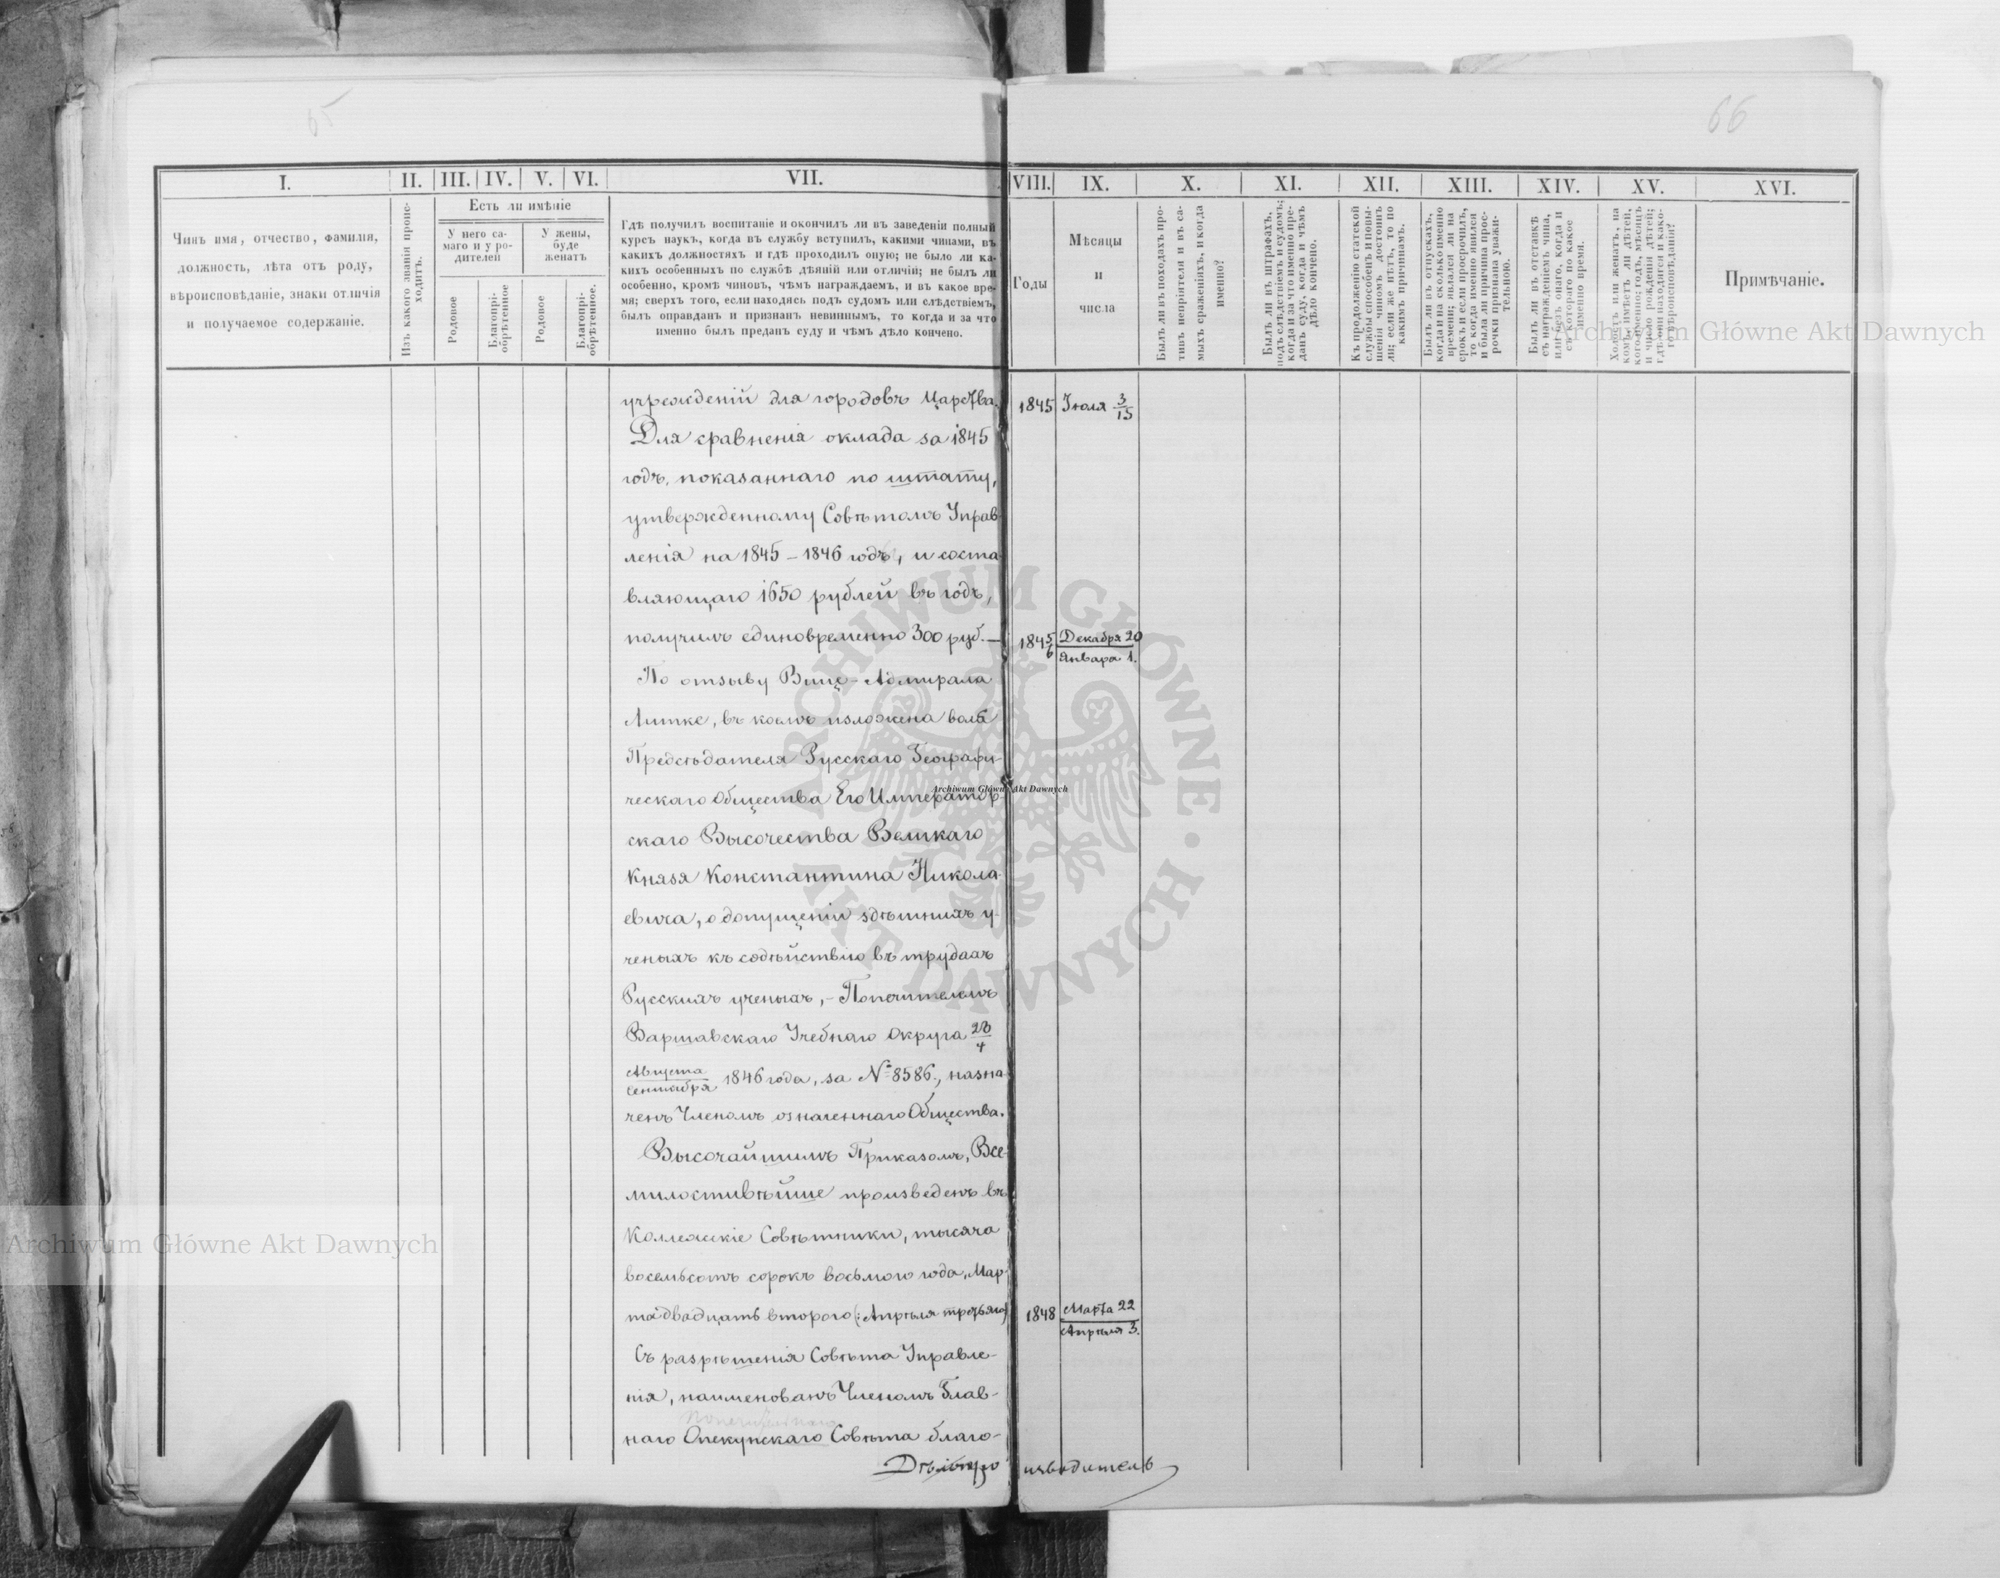 65
66
I.
II.
III.
IV.
V.
VI.
VII.
VIII.
IX.
X.
XI.
XII.
XIII.
XIV.
XV.
XVI.
Чинъ имя, отчество, фамилія,
должность, лѣта отъ роду,
вѣроисповѣданіе, знаки отличія
и получаемое содержаніе.
Изъ какого званія проис-
ходитъ.
Есть ли имѣніе
У него са-
маго и у ро-
дителей
У жены,
буде
женатъ
Родовое
Благопрі-
обрѣтенное
Родовое
Благопрі-
обрѣтенное.
Гдѣ получилъ воспитаніе и окончилъ ли въ заведеніи полный
курсъ наукъ, когда въ службу вступилъ, какими чинами, въ
какихъ должностяхъ и гдѣ проходилъ оную; не было ли ка-
кихъ особенныхъ по службѣ дѣяній или отличій; не былъ ли
особенно, кромѣ чиновъ, чѣмъ награждаемъ, и въ какое вре-
мя; сверхъ того, если находясь подъ судомъ или слѣдствіемъ,
былъ оправданъ и признанъ невиннымъ, то когда и за что
именно былъ преданъ суду и чѣмъ дѣло кончено.
Годы
Мѣсяцы
и
числа
Былъ ли въ походахъ про-
тивъ непріятеля и въ са-
мыхъ сраженіяхъ, и когда
именно?
Былъ ли въ штрафахъ,
подъ слѣдствіемъ и судомъ;
когда и за что именно пре-
данъ суду, когда и чѣмъ
дѣло кончено.
Къ продолженію статской
службы способенъ и повы-
шенія чиномъ достоинъ
ли; если же нѣтъ, то по
какимъ причинамъ.
Былъ ли въ отпускахъ,
когда и на сколько именно
времени; являлся ли на
срокъ и если просрочилъ,
то когда именно явился
и была ли причина прос-
рочки признана уважи-
тельною.
Былъ ли въ отставкѣ
съ награжденіемъ чина,
или безъ онаго, когда и
съ котораго по какое
именно время.
Холостъ или женатъ, на
комъ, имѣетъ ли дѣтей,
кого именно; годъ, мѣсяцъ
и число рожденія дѣтей;
гдѣ они находятся и како-
го вѣроисповѣданія?
Примѣчаніе.
учрежденій для городовъ Царства. 1845 Іюля 3/15
Для сравненія оклада за 1845
годъ, показаннаго по штату,
утвержденному Совѣтомъ Управ
ленія на 1845 – 1846 годъ, и соста
вляющаго 1650 рублей въ годъ,
получилъ единовременно 300 руб. — 1845/6 Декабря 20 / Января 1.
По отзыву Вице-Адмирала
Литке, въ коемъ изложена воля
Предсѣдателя Русскаго Географи-
ческаго Общества Его Император-
скаго Высочества Великаго
Князя Константина Никола-
евича, о допущеніи здѣшнихъ у-
ченыхъ къ содѣйствію въ трудахъ
Русскихъ ученыхъ, – Попечителемъ
Варшавскаго Учебнаго Округа 23/4
Августа/Сентября 1846 года, за № 8586, назна
ченъ Членомъ означеннаго Общества.
Высочайшимъ Приказомъ, Все-
милостивѣйше произведенъ въ
Коллежскіе Совѣтники, тысяча
восемьсотъ сорокъ восьмого года, Мар-
та двадцать второго (: Апрѣля третьяго) 1848 Марта 22 / Апрѣля 3.
Съ разрѣшенія Совѣта Управле-
нія, наименованъ Членомъ Глав-
Попечительнаго
наго Опекунскаго Совѣта благо-
Дѣлопроизводитель
Archiwum Główne Akt Dawnych
Archiwum Główne Akt Dawnych
Archiwum Główne Akt Dawnych
ARCHIWUM GŁÓWNE AKT DAWNYCH